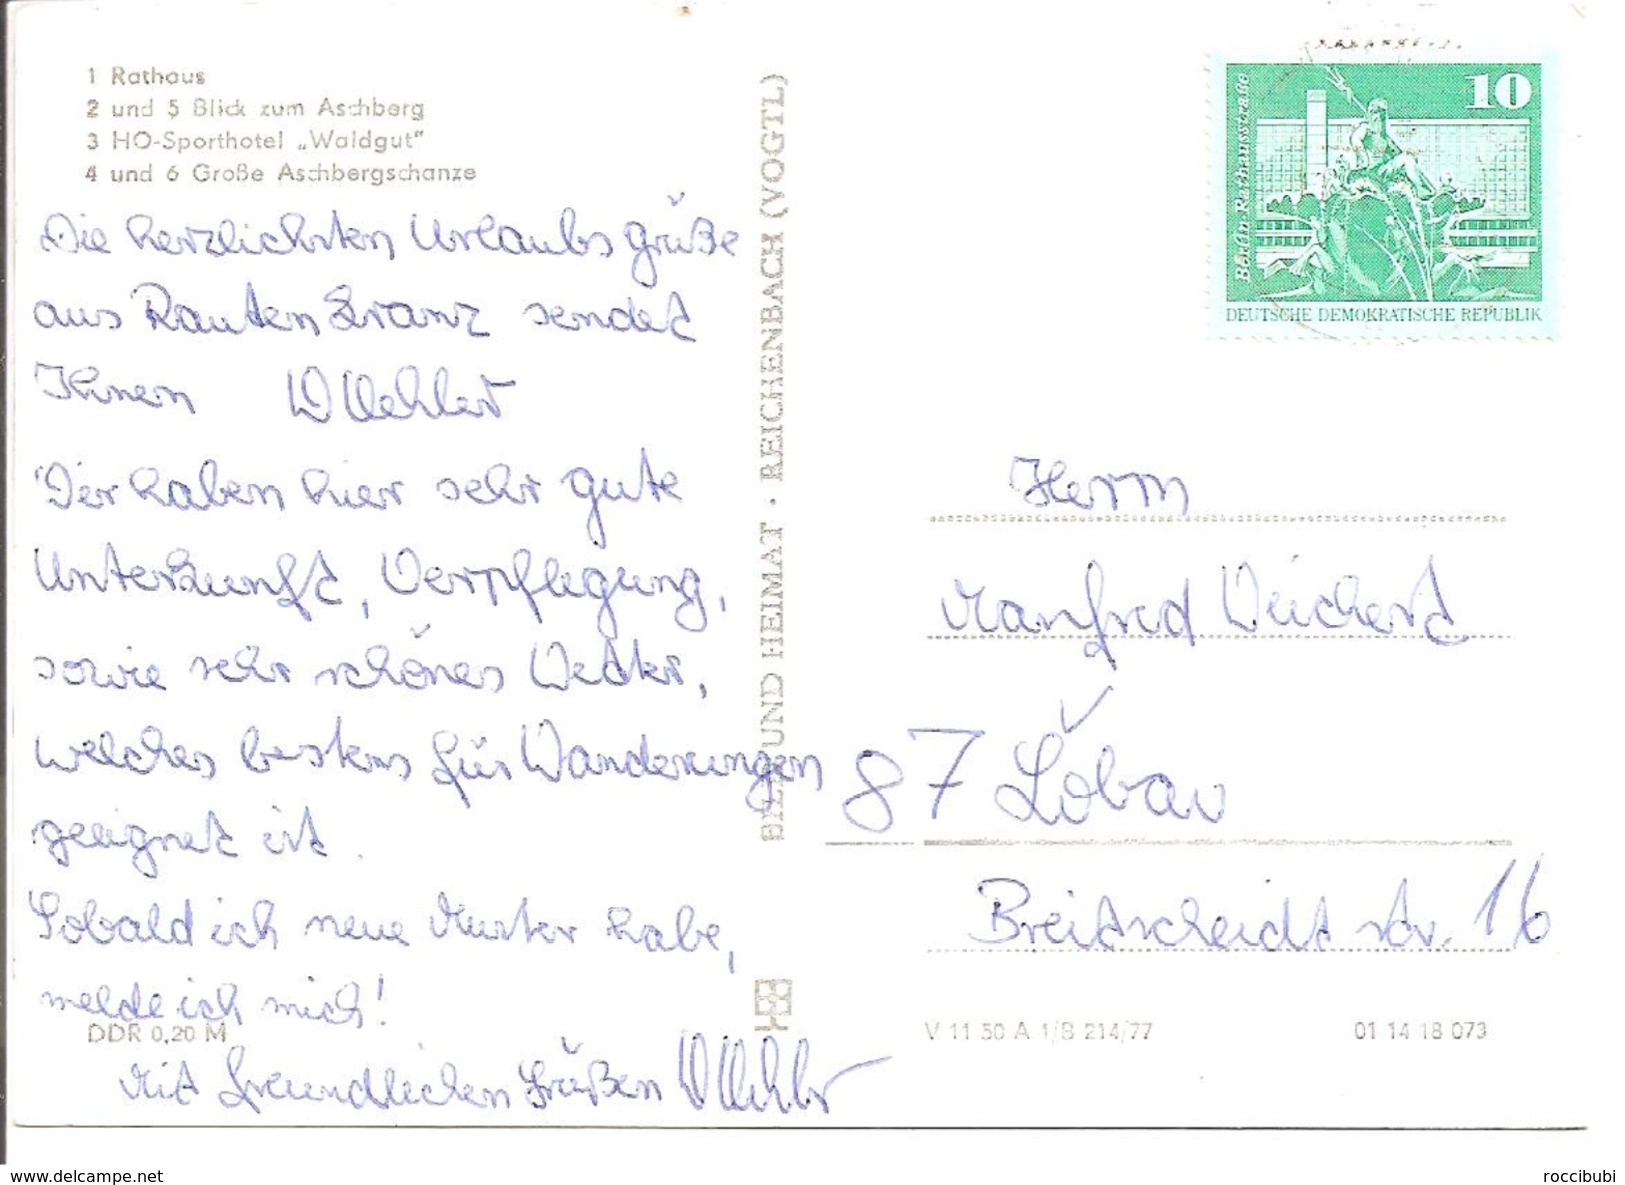 1 Rathaus
2 und 5 Blick zum Aschberg
3 HO-Sporthotel „Waldgut"
4 und 6 Große Aschbergschanze
Die herzlichsten Urlaubsgrüße
aus Rautenkranz sendet
Ihnen
Wir haben hier sehr gute
Unterkunft, Verpflegung,
sowie sehr schönes Wetter,
welches bestens für Wanderungen
geeignet ist.
Sobald ich neue Muster habe,
melde ich mich!
DDR 0,20 M
Mit freundlichen Grüßen
BILD UND HEIMAT · REICHENBACH (VOGTL)
10
Berlin Rathausstraße
DEUTSCHE DEMOKRATISCHE REPUBLIK
Herrn
Manfred Weichert
87 Löbau
Breitscheidt str. 16
V 11 50 A 1/B 214/77
01 14 18 073
www.delcampe.net
roccibubi